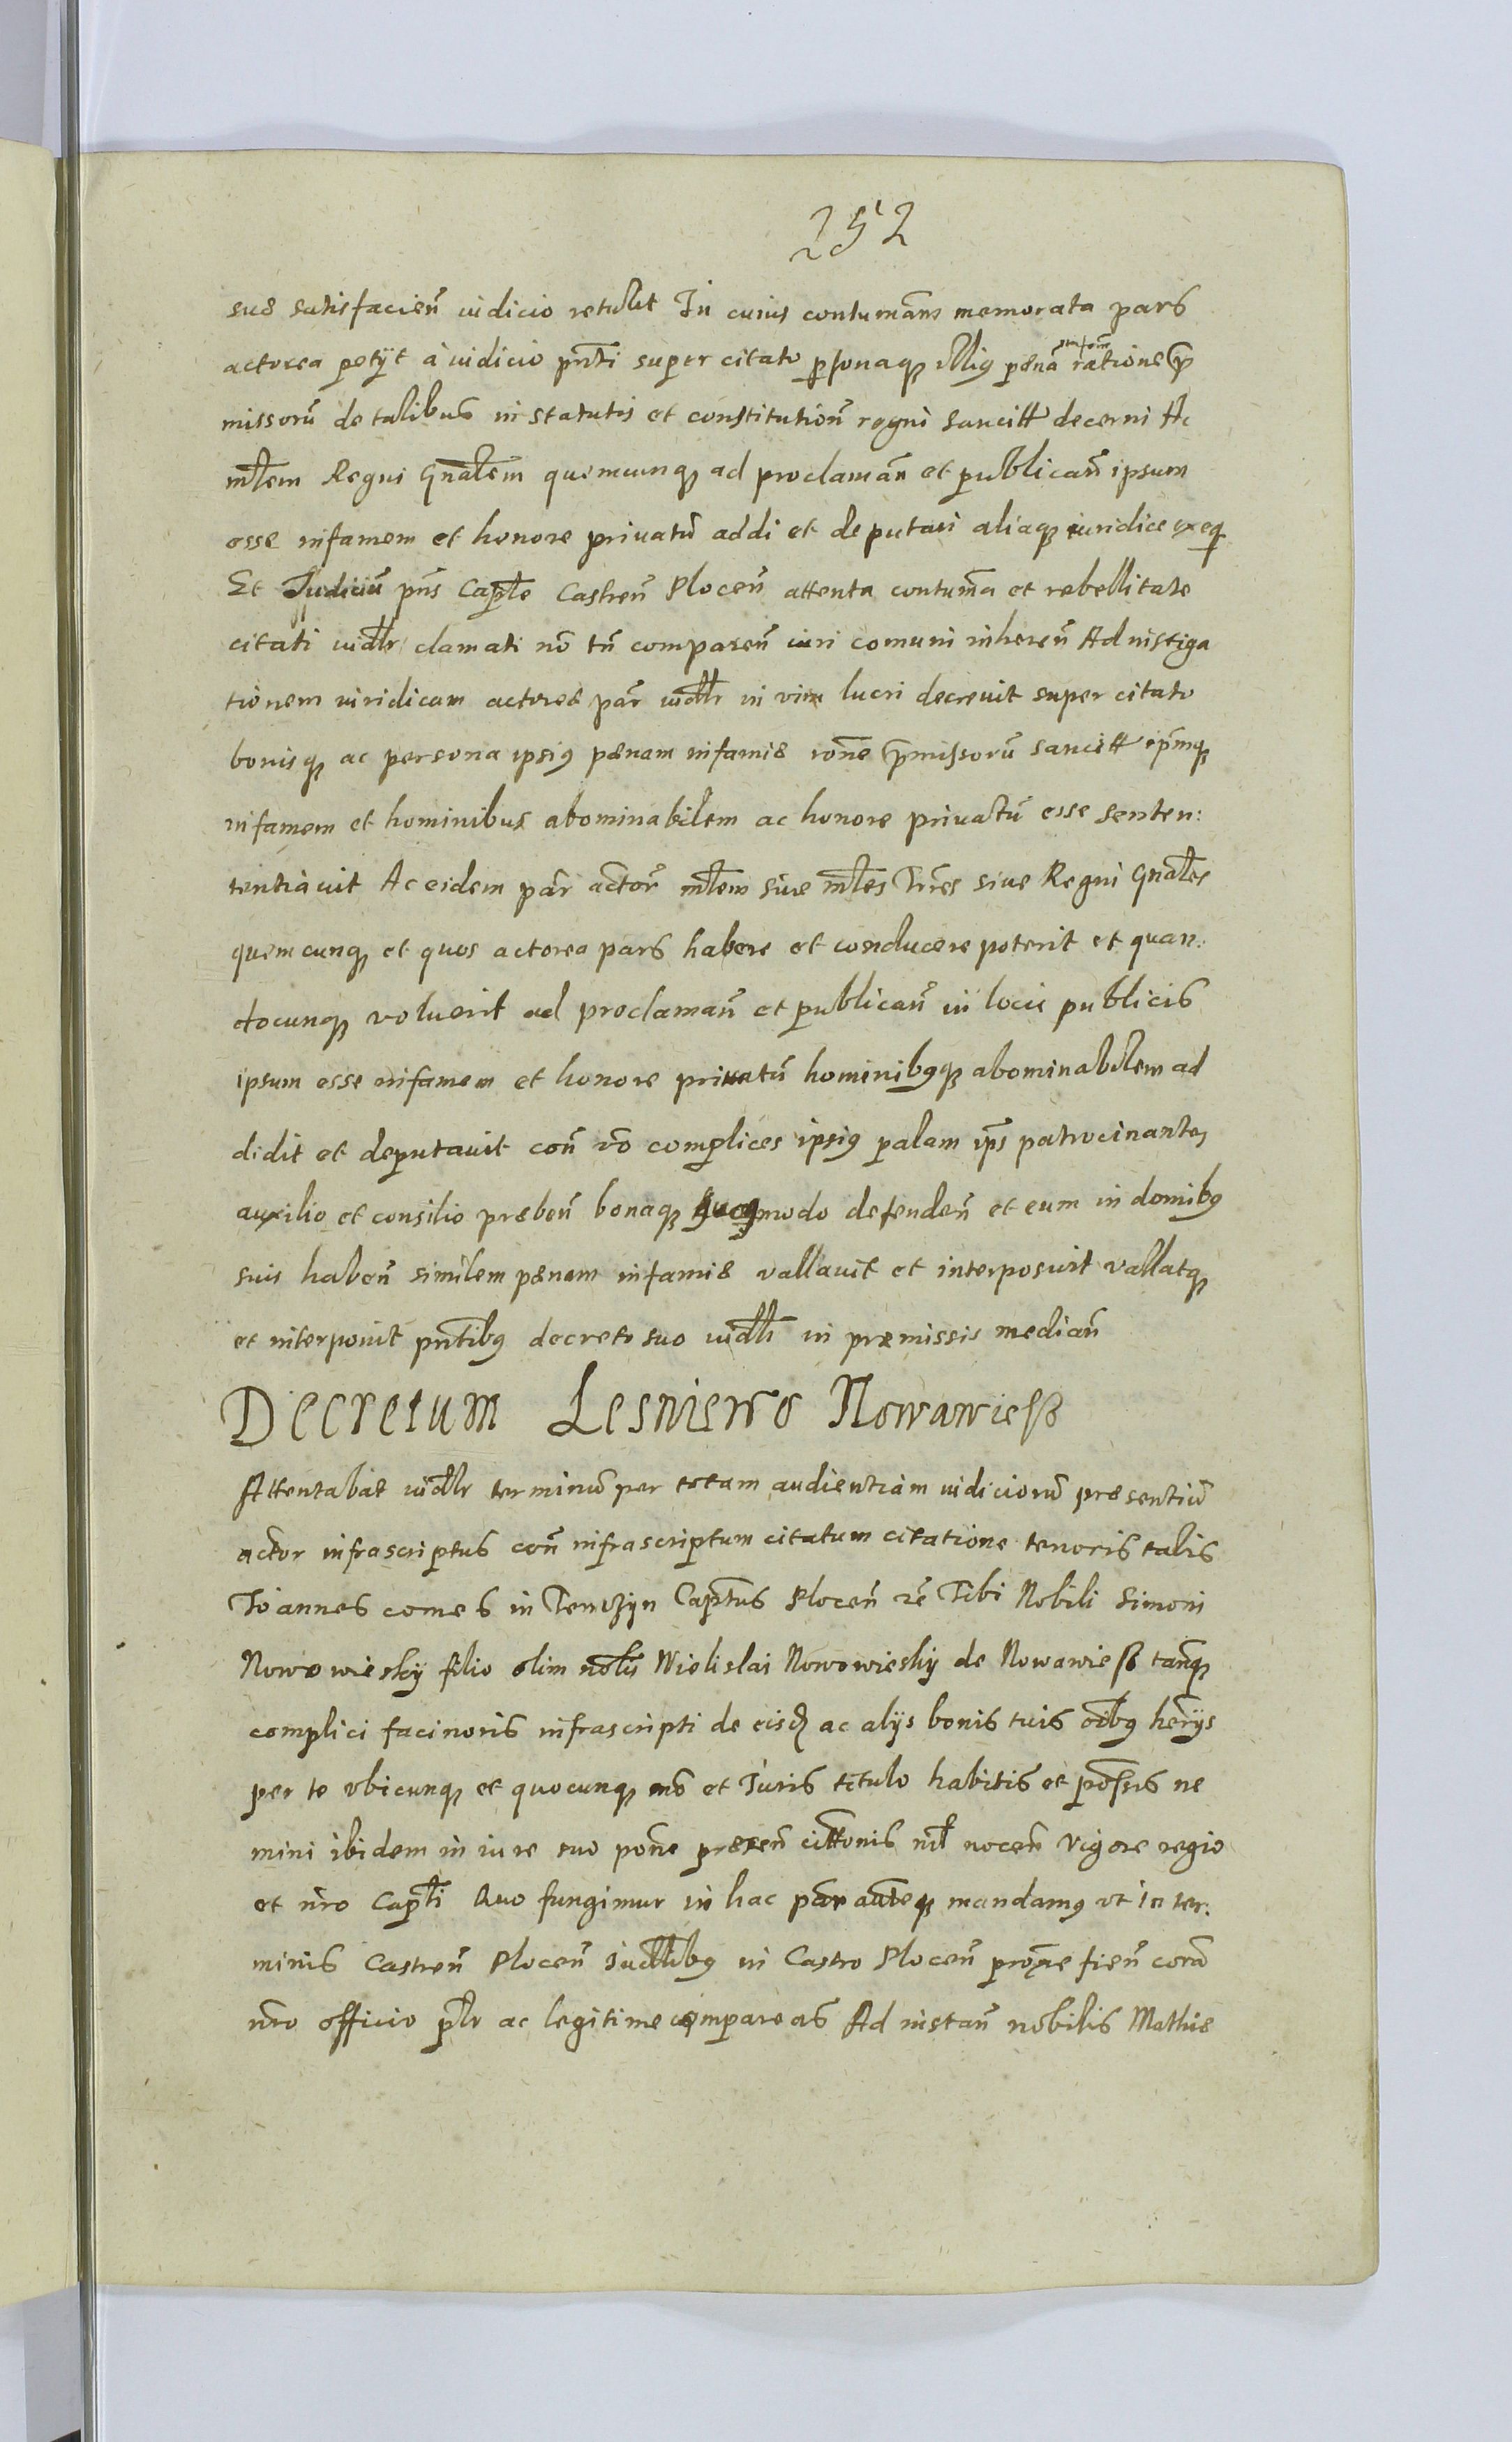 252
suæ satisfacien̄ iudicio retulit In cuius contumam̄ memorata pars
actorea petÿt à iudicio pn̄ti super citato personaq; illius pœnā infam̄ ratione præ
missorū de talibus in statutis et constitution̄ regni sancitt decerni Ac
mlem Regni Gn̄alem quemcunq; ad proclaman̄ et publican̄ ipsum
esse infamem et honore priuatū addi et deputari aliaq; iuridice exeq
Et Judiciū pn̄s Capłe Castren̄ Plocen̄ attenta contum̄a et rebellitate
citati iudłr clamati nō tn̄ comparen̄ iuri comuni inheren̄ Ad instiga
tionem iuridicam actoreæ par̄ iudłr in vim lucri decreuit super citato
bonisq; ac persona ipsius pœnam infamiæ rōne præmissorū sancitt ipm̄q;
infamem et hominibus abominabilem ac honore priuatū esse senten:
tentiauit Ac eidem par̄ actor̄ młem siue młes Trr̄es siue Regni Gn̄ałes
quemcunq; et quos actorea pars habere et conducere poterit et quan:
docunq; voluerit ad proclaman̄ et publican̄ in locis publicis
ipsum esse infamem et honore priuatū hominibusq; abominabilem ad
didit et deputauit con̄ vō complices ipsius palam ip̄s patrocinantes
auxilio et consilio præben̄ bonaq; modo defenden̄ et eum in domibus
suis haben̄ similem pœnam infamiæ vallauit et interposuit vallatq;
et interponit pn̄tibus decreto suo iudłi in præmissis median̄
Decretum Lesniewo Nowawiesß
Attentabat iudłr terminū per totam audientiam iudiciorū præsentiū
actor infrascriptus con̄ infrascriptum citatum citatione tenoris talis
Ioannes comes in Tenczÿn Captūs Plocen̄ rē Tibi Nobili Simoni
Nowowieskÿ filio olim nobłis Wielislai Nowowieskÿ de Nowawiesß tanq̄;
complici facinoris infrascripti de eisd ac alÿs bonis tuis oībus herÿs
per te vbicunq; et quocunq; mō et Iuris titulo habitis et possis ne
mini ibidem in iure suo pōne præsen̄ citt̄onis nił nocen̄ Vigore regio
et nr̄o Capłi Quo fungimur in hac par̄ aut̄eq; mandamus vt in ter:
minis Castren̄ Plocen̄ Iudłłibus in Castro Plocen̄ prox̄e fien̄ corā
nr̄o officio płr ac legitime compareas Ad instan̄ nobilis Mathiæ